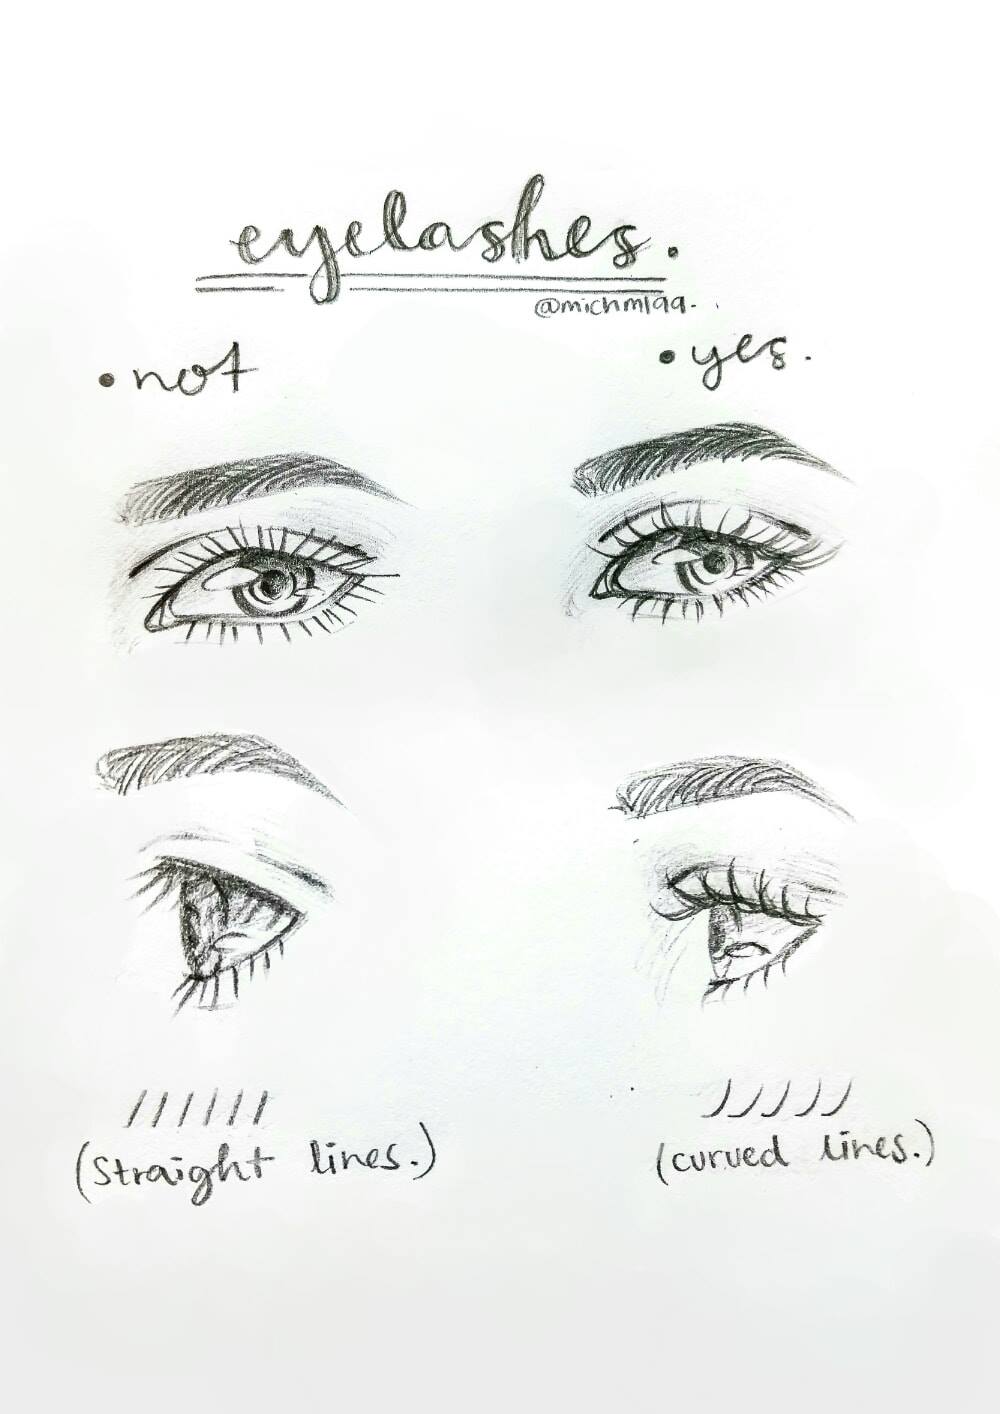 eyelashes.
@michm199.
• not
• yes.
(Straight lines.)
(curved lines.)